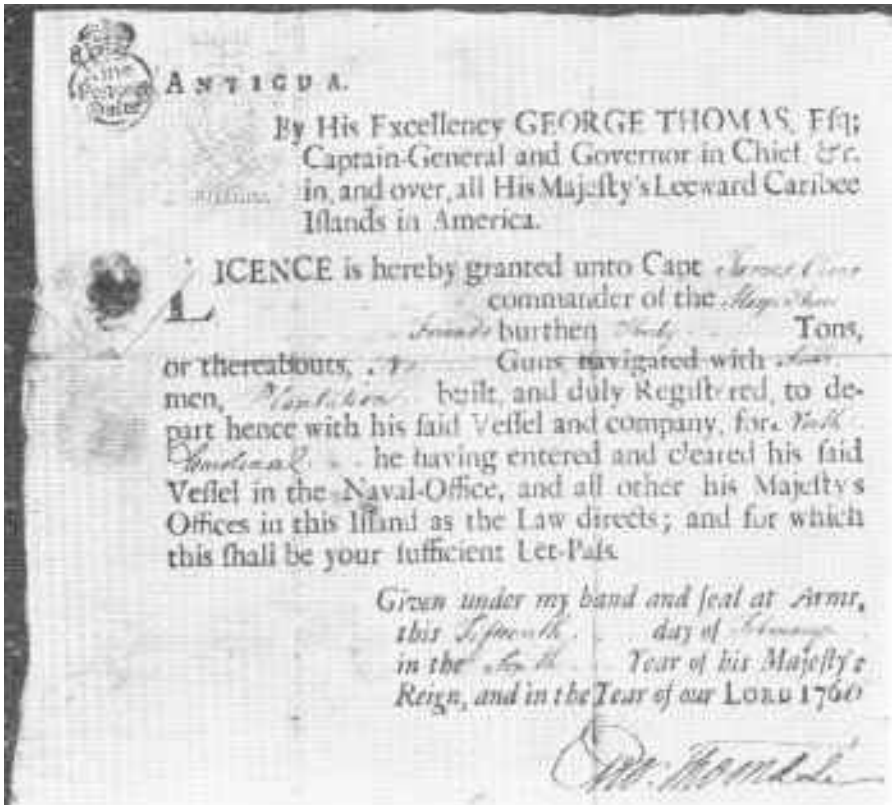 ANTIGUA.
By His Excellency GEORGE THOMAS, Eſq;
Captain-General and Governor in Chief &c.
in, and over, all His Majeſty's Leeward Caribee
Iſlands in America.
LICENCE is hereby granted unto Capt James
commander of the
Friends burthen Tons,
or thereabouts, No Guns navigated with
men, Plantation built, and duly Regiſtered, to de-
part hence with his ſaid Veſſel and company, for North
Carolina he having entered and cleared his ſaid
Veſſel in the Naval-Office, and all other his Majeſty's
Offices in this Iſland as the Law directs; and for which
this ſhall be your ſufficient Let-Paſs.
Given under my hand and ſeal at Arms,
this day of February
in the Year of his Majeſty's
Reign, and in the Year of our LORD 1760
Geo: Thomas